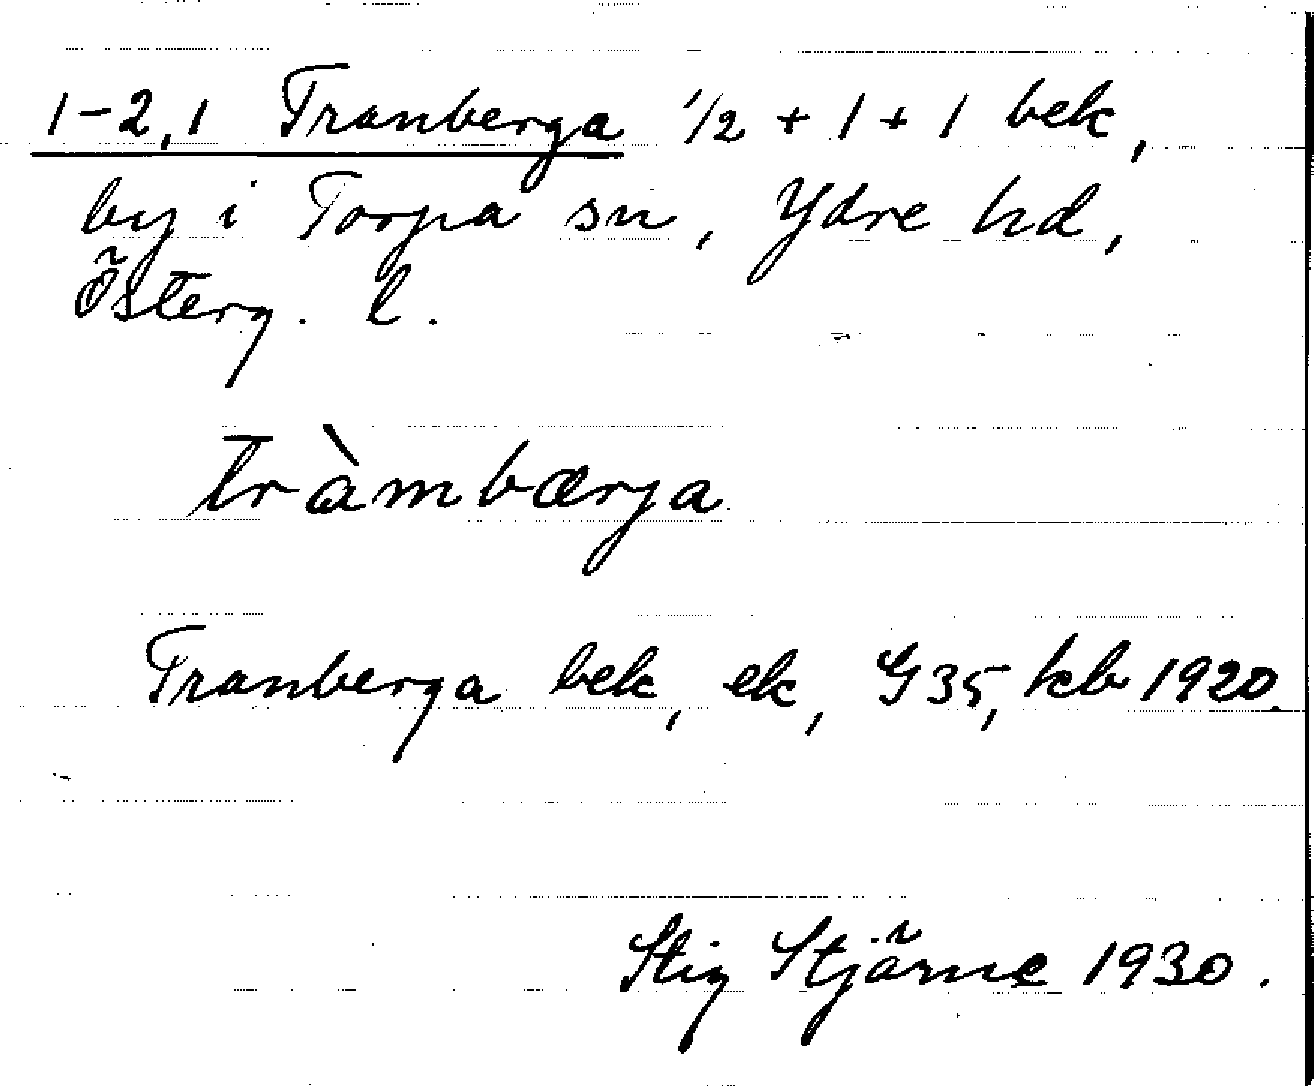 1-2,1 Tranberga 1/2 + 1 + 1 bek,
by i Torpa sn, Ydre hd,
Österg. l.
tràmbærja
Tranberga bek, ek, G35, kb 1920.
Stig Stjärne 1930.